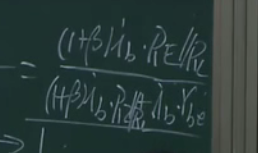 = (1+β)i_b·R_E//R_L
(1+β)i_b·R_E//R_L+i_b·r_be